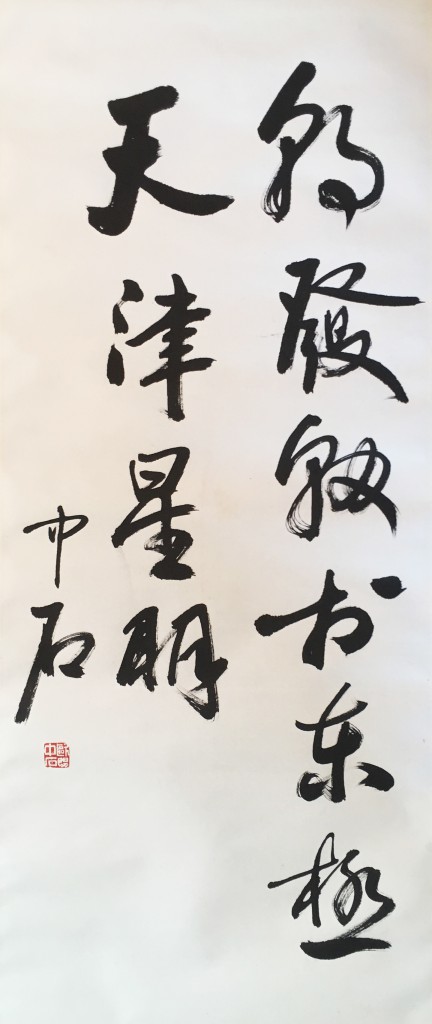 朝發軔於東極
天津星明
中石
歐陽中石